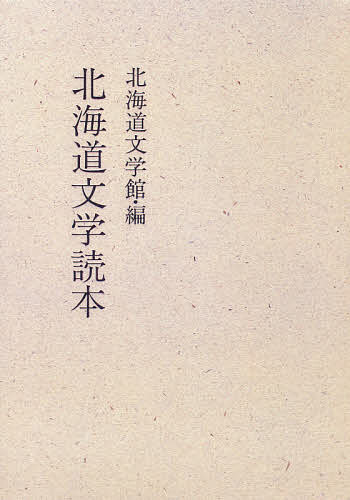 北海道文学館・編
北海道文学読本